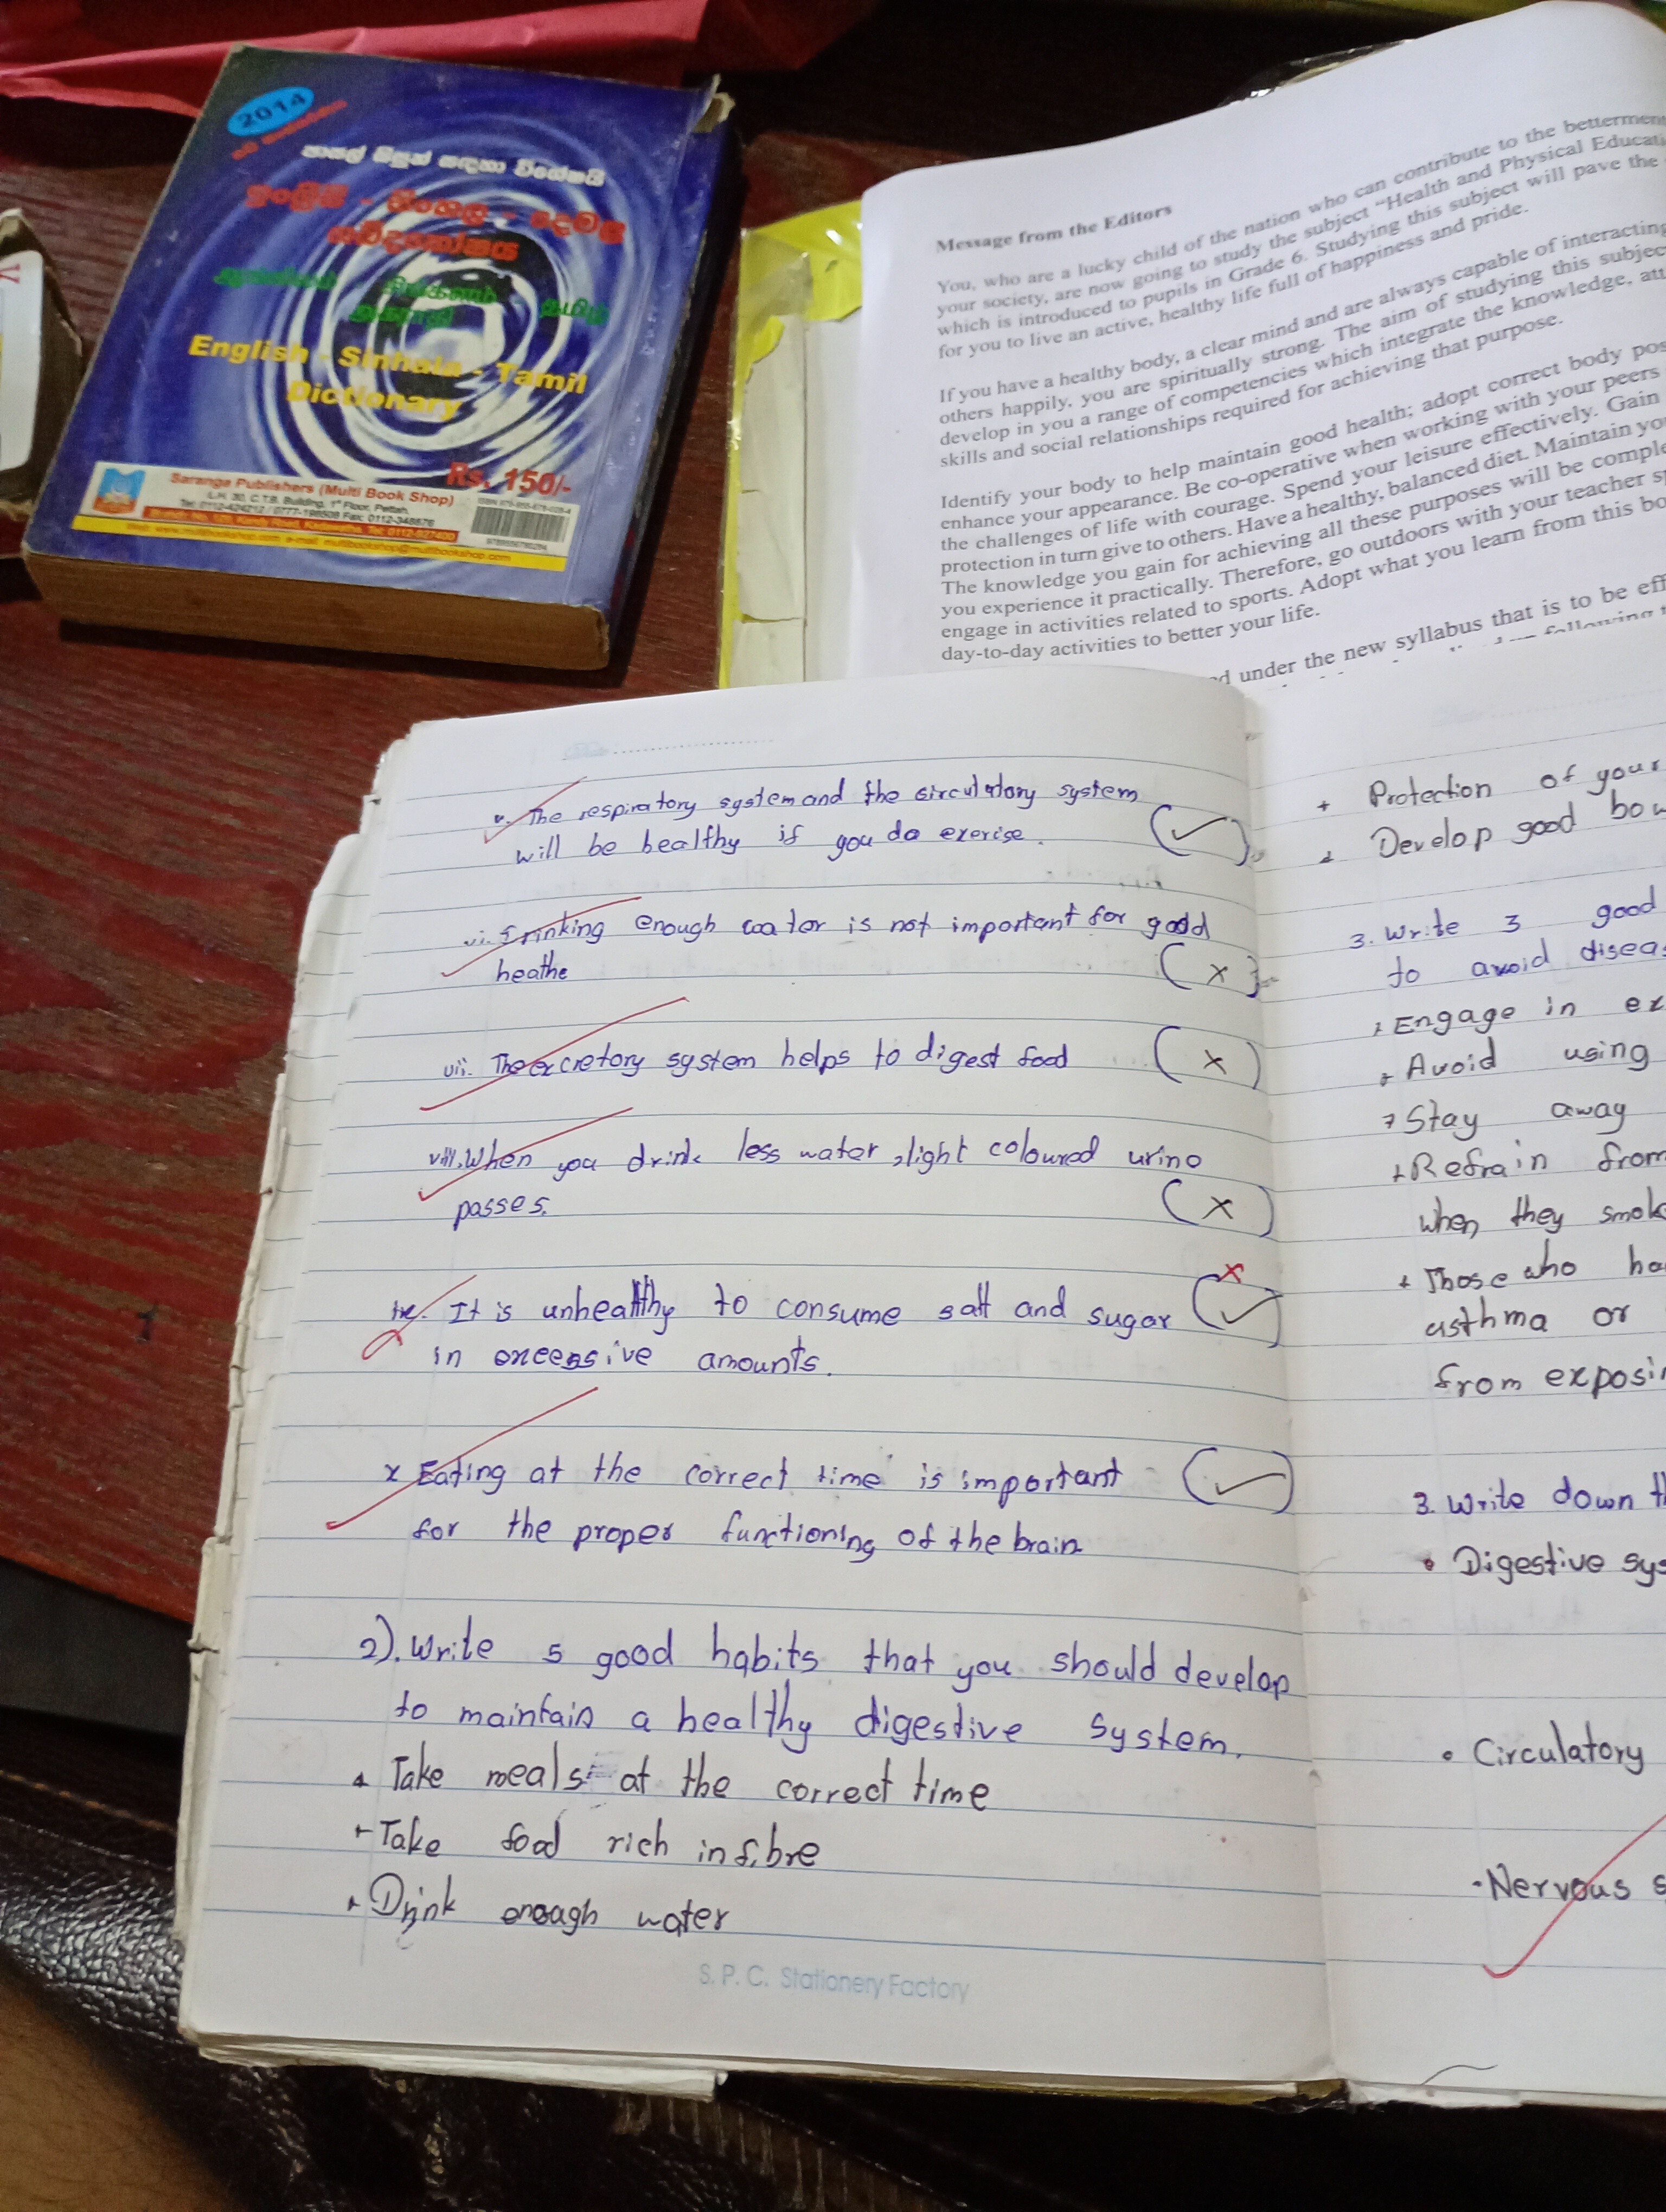 2014
English - Sinhala - Tamil
Dictionary
Rs. 150/-
Saranga Publishers (Multi Book Shop)
L.H. 30, C.T.B. Building, 1st Floor, Pettah.
Message from the Editors
You, who are a lucky child of the nation who can contribute to the betterment
your society, are now going to study the subject "Health and Physical Educati
which is introduced to pupils in Grade 6. Studying this subject will pave the
for you to live an active, healthy life full of happiness and pride.
If you have a healthy body, a clear mind and are always capable of interacting
others happily, you are spiritually strong. The aim of studying this subjec
develop in you a range of competencies which integrate the knowledge, att
skills and social relationships required for achieving that purpose.
Identify your body to help maintain good health; adopt correct body pos
enhance your appearance. Be co-operative when working with your peers
the challenges of life with courage. Spend your leisure effectively. Gain
protection in turn give to others. Have a healthy, balanced diet. Maintain yo
The knowledge you gain for achieving all these purposes will be comple
you experience it practically. Therefore, go outdoors with your teacher sp
engage in activities related to sports. Adopt what you learn from this bo
day-to-day activities to better your life.
d under the new syllabus that is to be eff
following
v. The respiratory system and the circulatory system
will be healthy if you do exerise. (✓)
vi. Drinking enough water is not important for good
heathe (x)
vii. The excretory system helps to digest food (x)
viii. When you drink less water, light coloured urine
passes. (x)
x
ix. It is unhealthy to consume salt and sugar (✓)
in excessive amounts.
x Eating at the correct time is important (✓)
for the proper functioning of the brain
2). Write 5 good habits that you should develop
to maintain a healthy digestive system.
Take meals at the correct time
Take food rich in fibre
Drink enough water
S. P. C. Stationery Factory
+ Protection of your
Develop good bow
3. Write 3 good
to avoid diseas
Engage in ex
Avoid using
Stay away
+ Refrain from
when they smok
+ Those who ha
asthma or
from exposin
3. Write down th
• Digestive sys
• Circulatory
• Nervous s